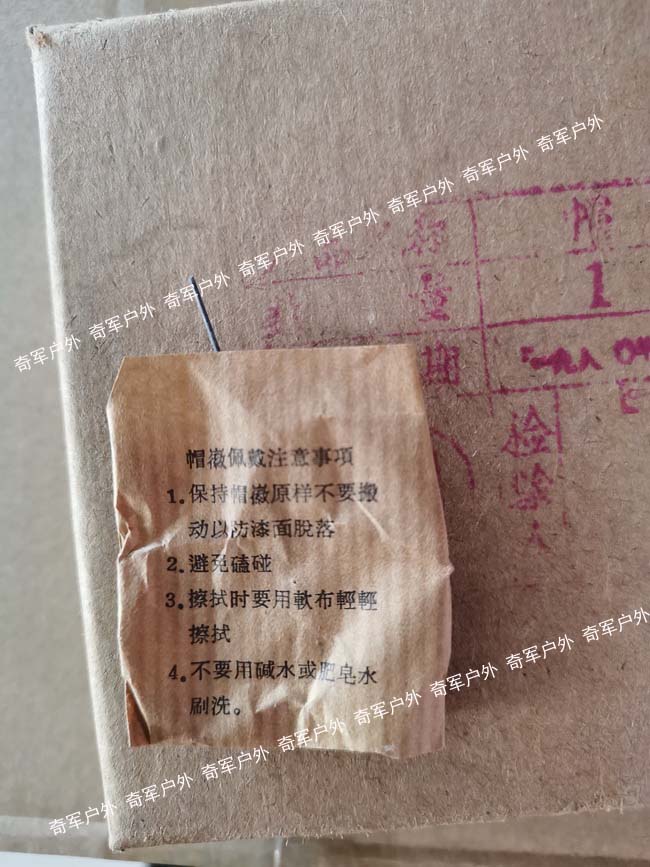 奇军户外 奇军户外 奇军户外 奇军户外 奇军户外 奇军户外 奇军户外 奇军户外
量 1
期
检
帽徽佩戴注意事項
1.保持帽徽原样不要搬
动以防漆面脫落
2.避免磕碰
3.擦拭时要用軟布輕輕
擦拭
4.不要用碱水或肥皂水
刷洗。
奇军户外 奇军户外 奇军户外 奇军户外 奇军户外 奇军户外 奇军户外 奇军户外